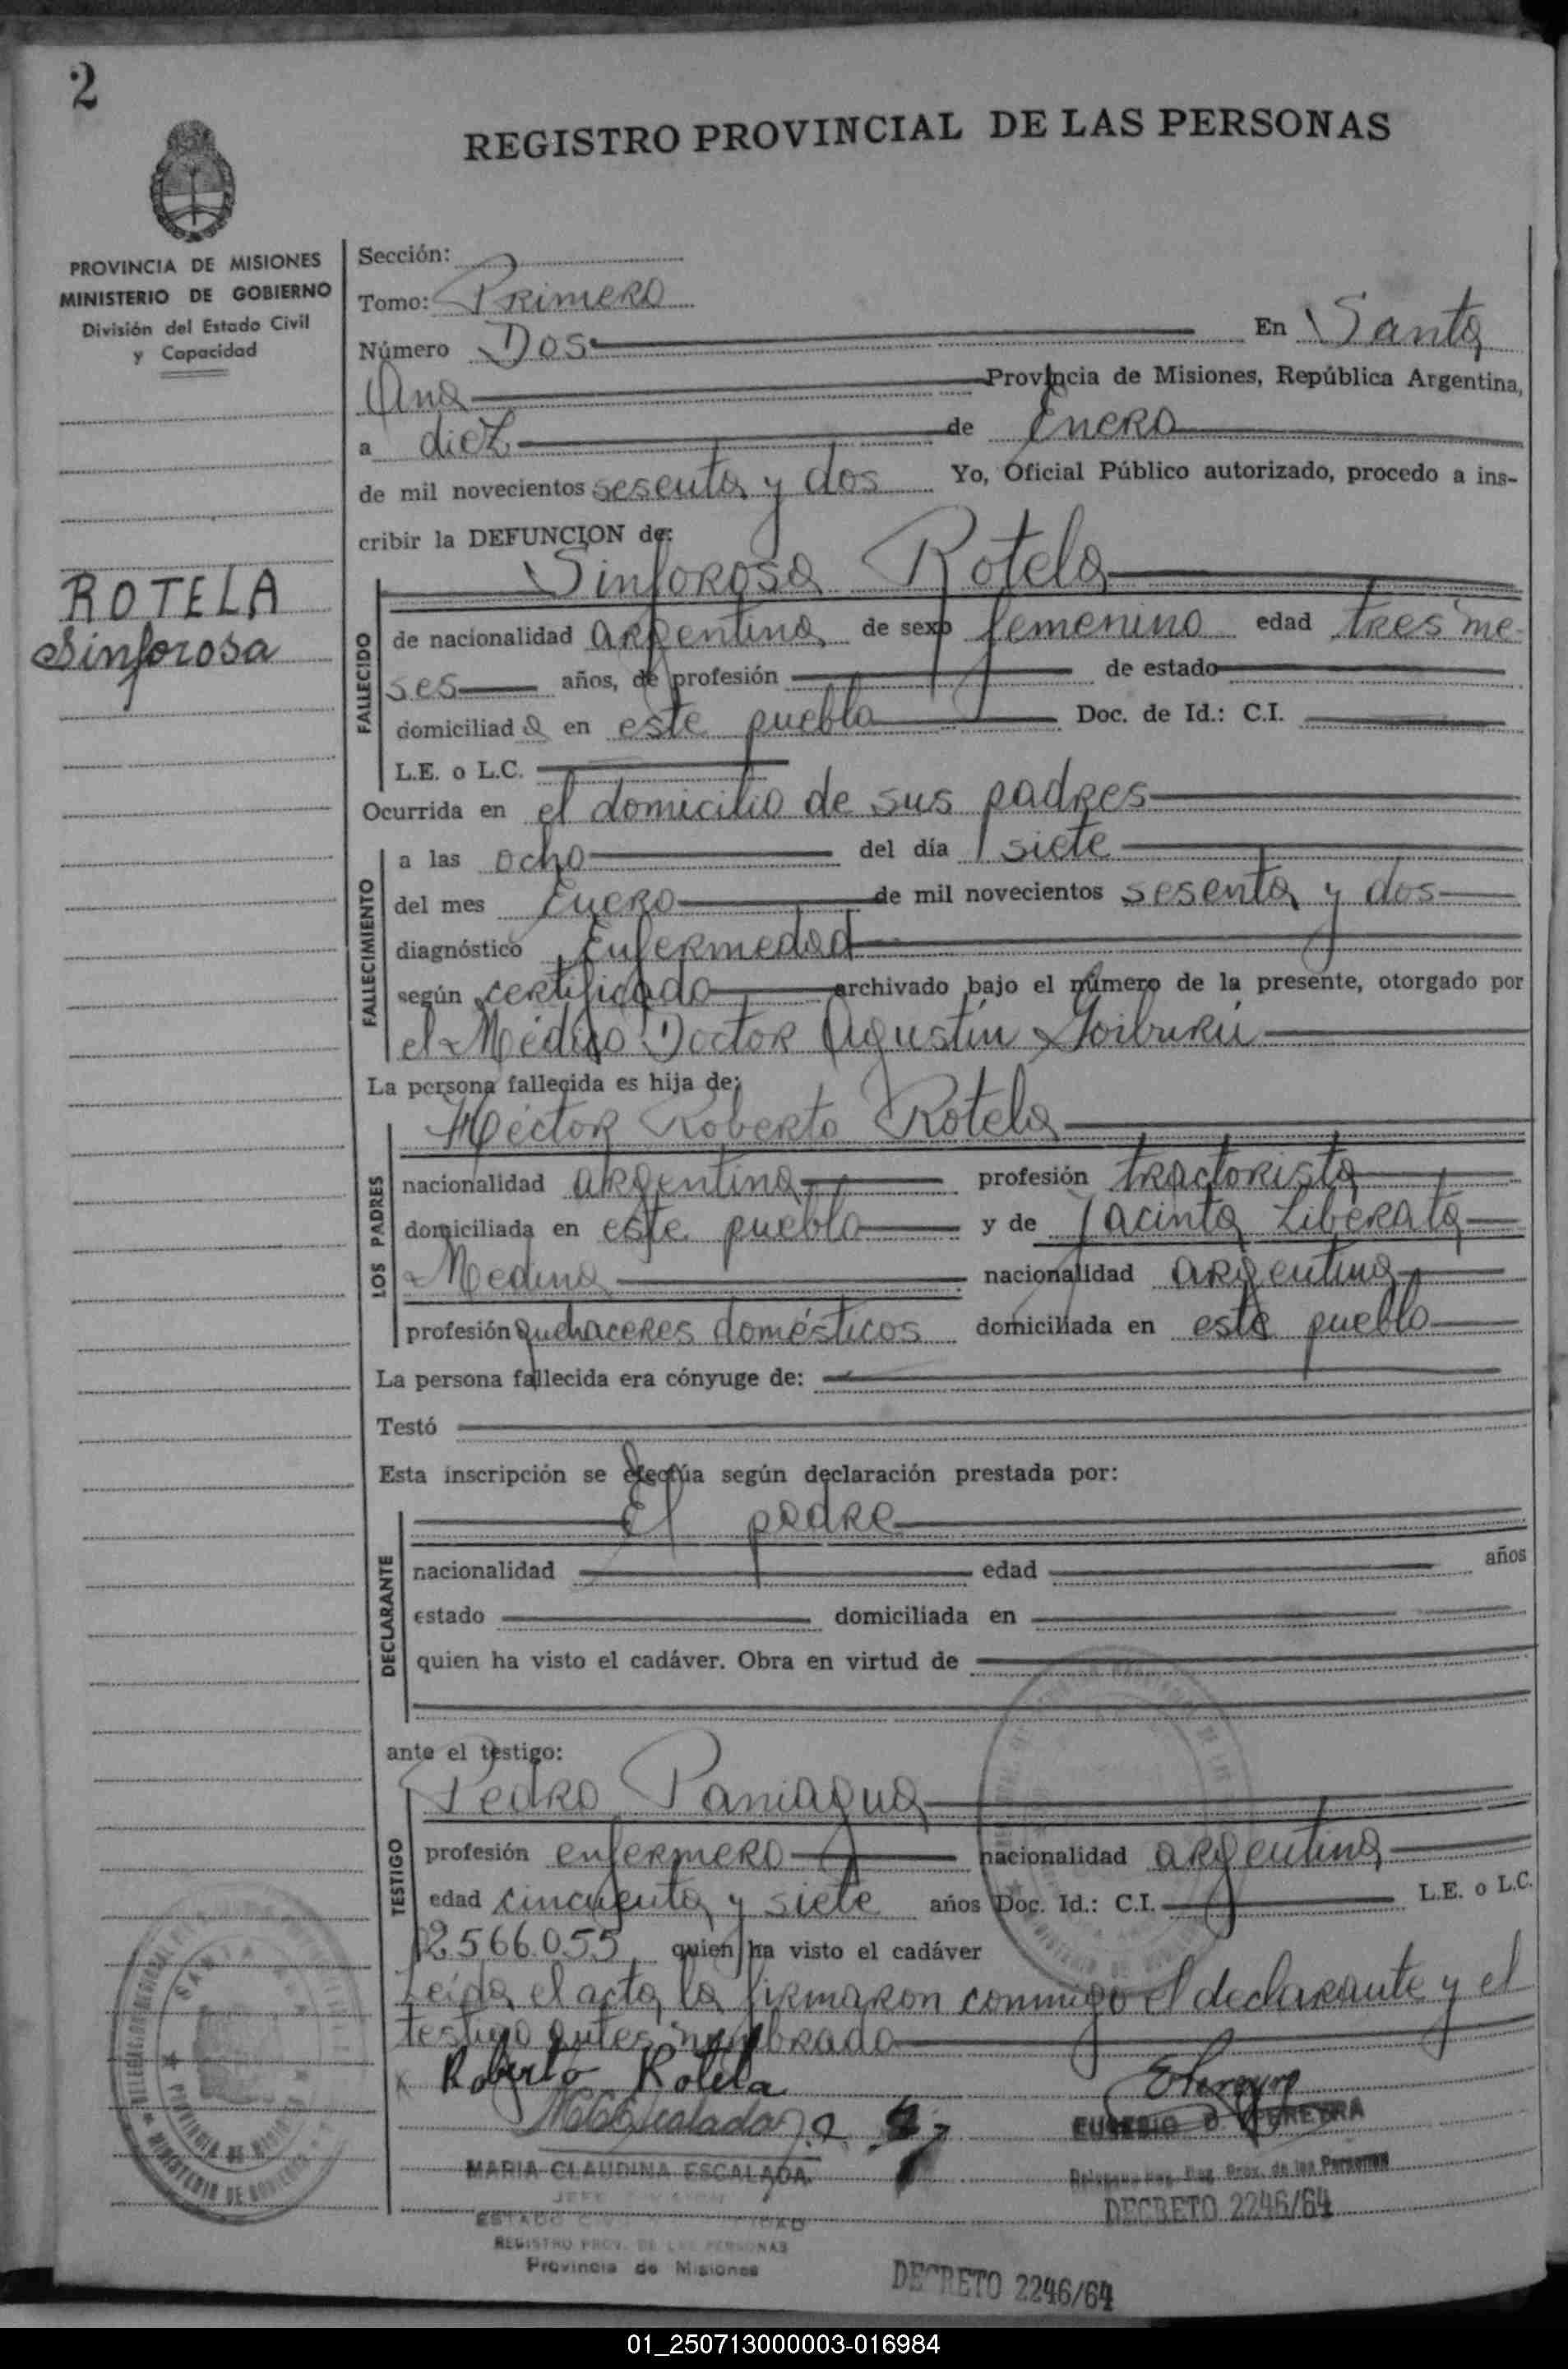 2
REGISTRO PROVINCIAL DE LAS PERSONAS
PROVINCIA DE MISIONES
MINISTERIO DE GOBIERNO
División del Estado Civil
y Capacidad
ROTELA
Sinforosa
Sección:
Tomo: Primero
Número Dos En Santa
Ana Provincia de Misiones, República Argentina,
a diez de Enero
de mil novecientos sesenta y dos Yo, Oficial Público autorizado, procedo a ins-
cribir la DEFUNCION de:
Sinforosa Rotela
FALLECIDO
de nacionalidad argentina de sexo femenino edad tres me-
ses años, de profesión de estado
domiciliad a en este pueblo Doc. de Id.: C.I.
L.E. o L.C.
Ocurrida en el domicilio de sus padres
FALLECIMIENTO
a las ocho del día siete
del mes Enero de mil novecientos sesenta y dos
diagnóstico Enfermedad
según certificado archivado bajo el número de la presente, otorgado por
el Médico Doctor Agustín Goiburú
La persona fallecida es hija de:
Héctor Roberto Rotela
LOS PADRES
nacionalidad argentina profesión tractorista
domiciliada en este pueblo y de Jacinta Liberata
Medina nacionalidad argentina
profesión quehaceres domésticos domiciliada en este pueblo
La persona fallecida era cónyuge de:
Testó
Esta inscripción se efectúa según declaración prestada por:
El padre
DECLARANTE
nacionalidad edad años
estado domiciliada en
quien ha visto el cadáver. Obra en virtud de
ante el testigo:
Pedro Paniagua
TESTIGO
profesión enfermero nacionalidad argentina
edad cincuenta y siete años Doc. Id.: C.I. L.E. o L.C.
2566.055 quien ha visto el cadáver
Leída el acta, la firmaron conmigo el declarante y el
testigo antes nombrado
Roberto Rotela
EUGENIO D PEREYRA
MARIA CLAUDINA ESCALADA
Reg. Prov. de las Personas
JEFE
DECRETO 2246/64
ESTADO
REGISTRO PROV. DE LAS PERSONAS
Provincia de Misiones
DECRETO 2246/64
SANTA ANA
PROVINCIA DE MISIONES
MINISTERIO DE GOBIERNO
01_250713000003-016984